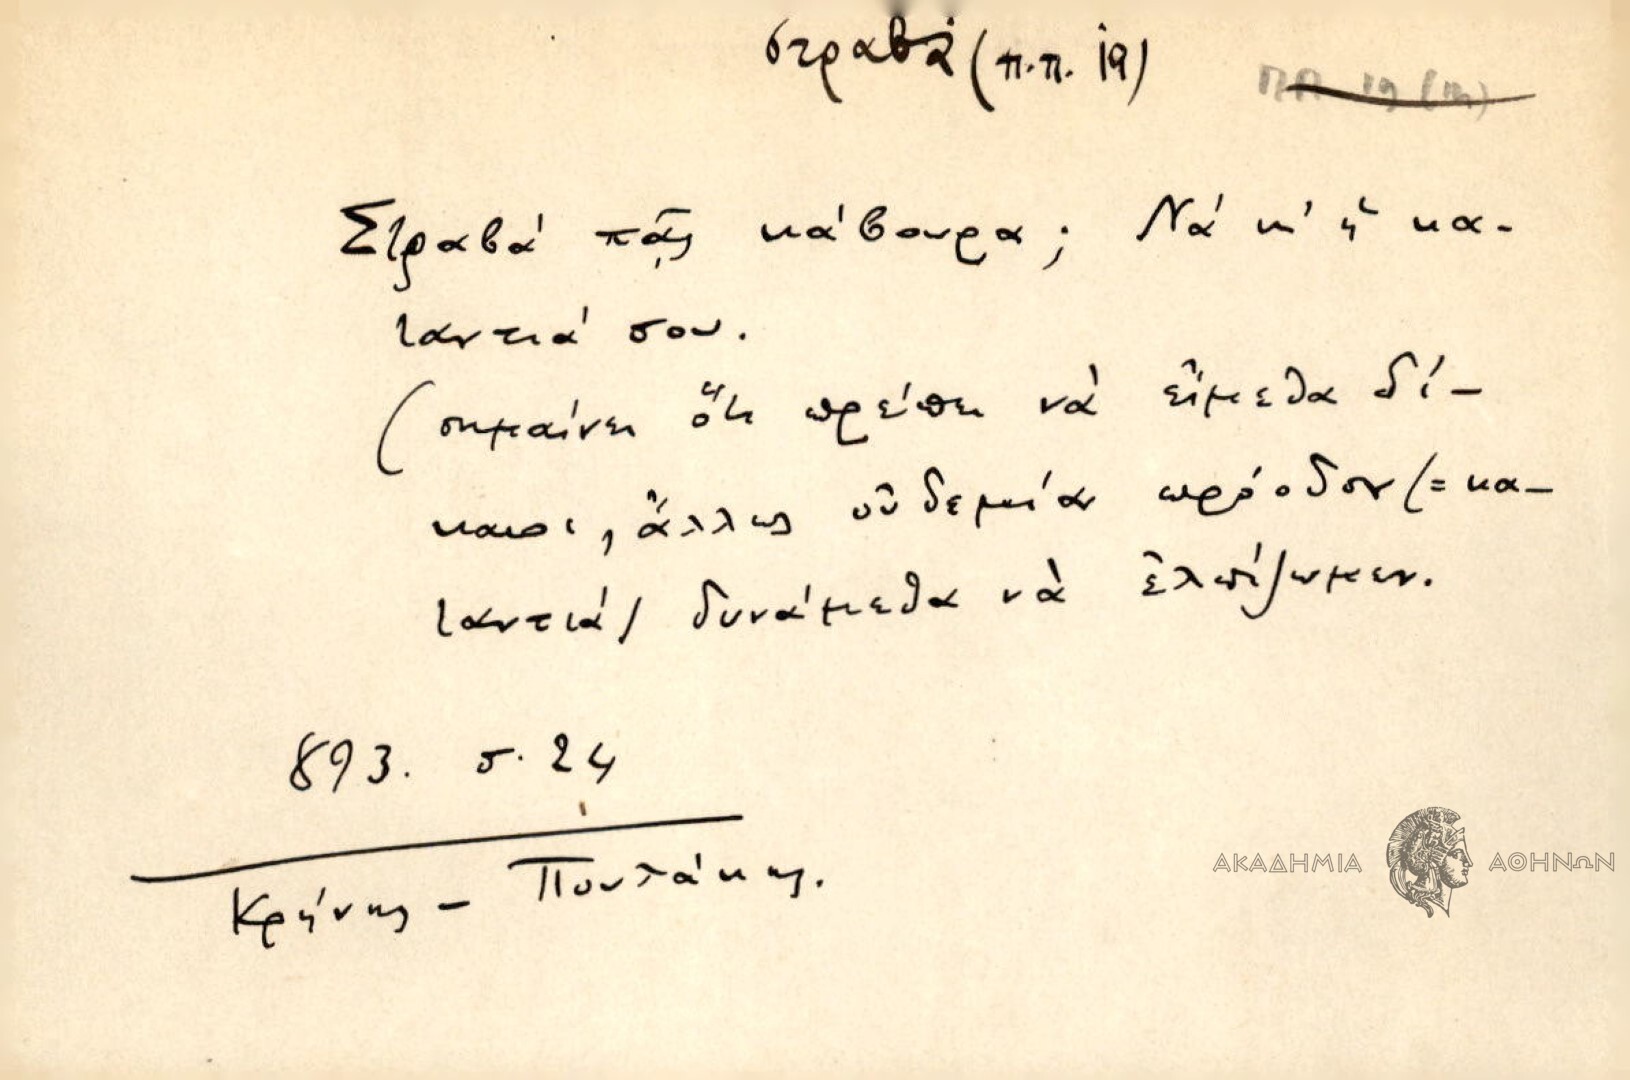 στραβά (π.π. 19)
Στραβά πᾷς κάβουρα; Νά κ' ἡ κα-
ταντιά σου.
(σημαίνει ὅτι πρέπει νὰ εἴμεθα δί-
καιοι, ἄλλως οὐδεμίαν πρόοδον (= κα-
ταντιά) δυνάμεθα νὰ ἐλπίζωμεν.
893. σ. 24
Κρήνης - Πουλάκης.
ΑΚΑΔΗΜΙΑ ΑΘΗΝΩΝ